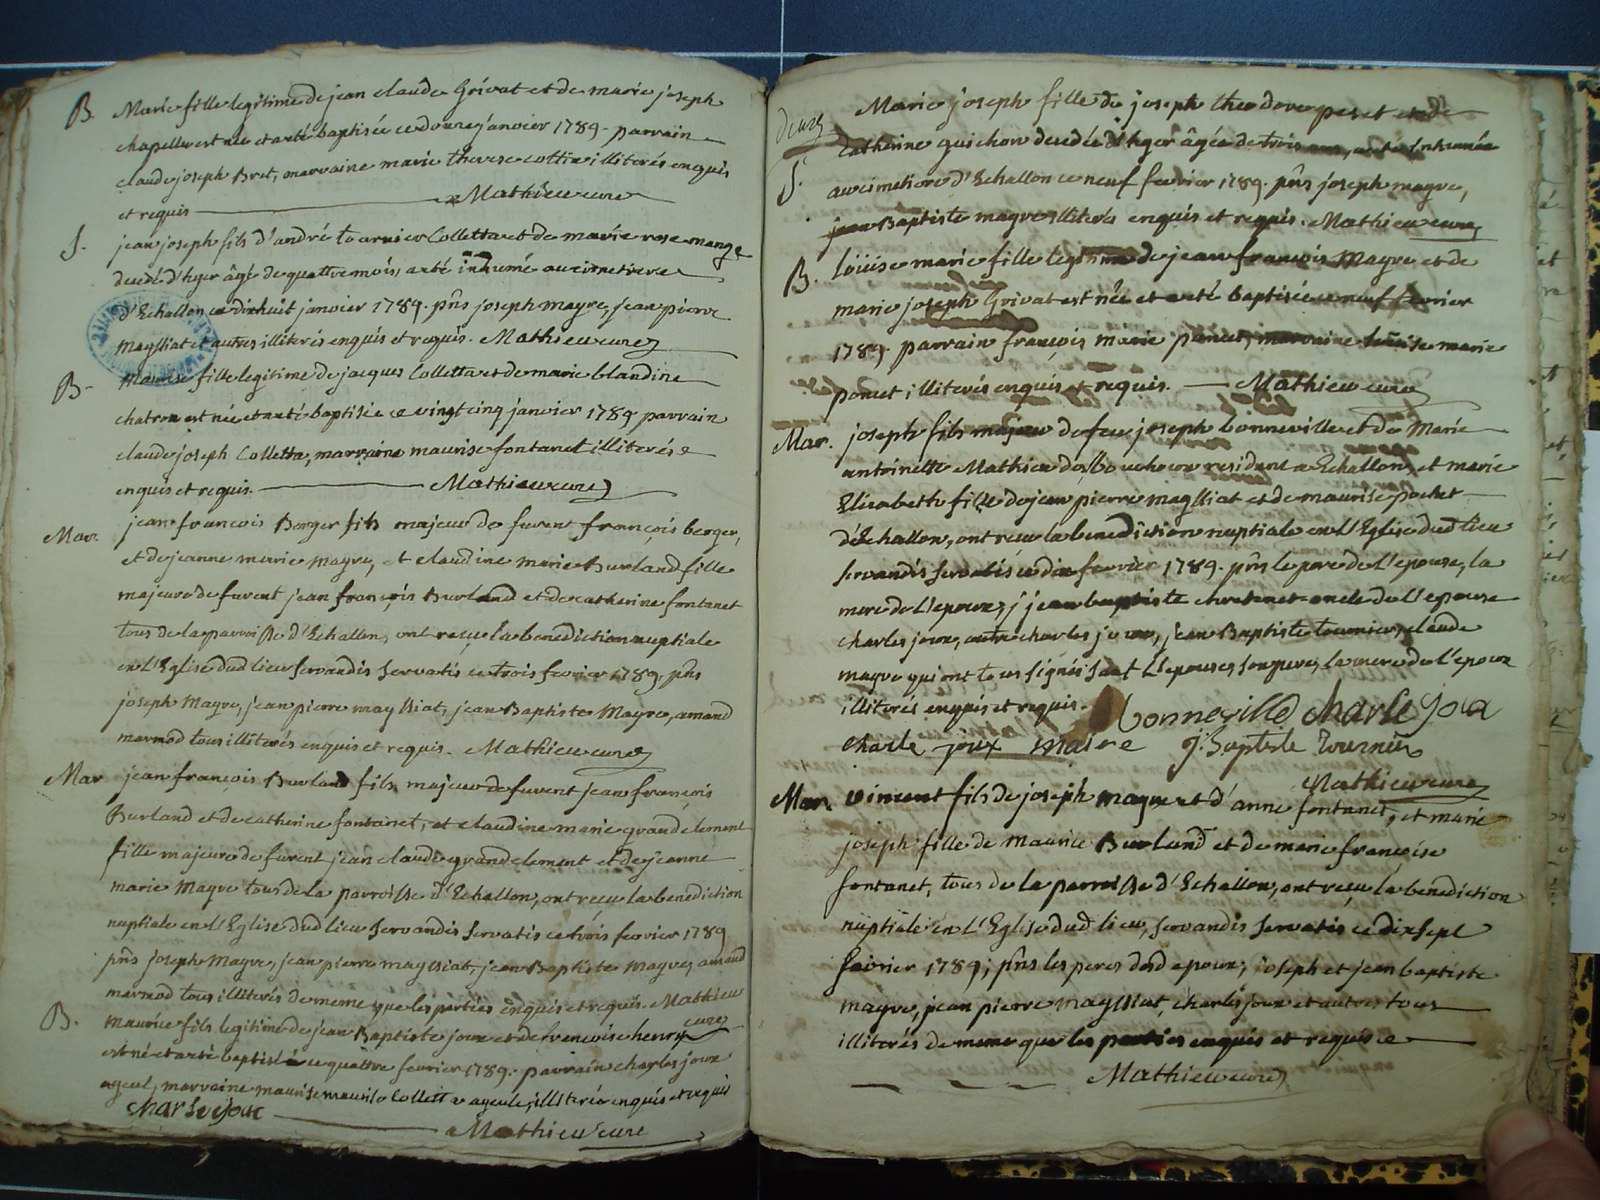 B. Marie fille legitime de jean claude Grivat et de marie joseph
chapelle est née et a eté baptisée ce douze janvier 1789. parrain
claude joseph Bret, marraine marie therese cottin illiterés enquis
et requis Mathieu curé
S. jean joseph fils d'andré tournier Colletta et de marie rose monge
decedé d'hyer âgé de quattre mois, a eté inhumé au cimetiere
d'Echallon ce dixhuit janvier 1789. pñs joseph magre, jean pierre
maylliat et autres illiterés enquis et requis. Mathieu curé
B. Maurise fille legitime de jacques Colletta et de marie blandine
chatron est née et a eté baptisée ce vingt cinq janvier 1789 parrain
claude joseph Colletta, marraine maurise fontanet illiterés
enquis et requis. Mathieu curé
Mar. jean françois Berger fils majeur de furent françois berger,
et de jeanne marie magre, et claudine marie Burland fille
majeure de furent jean françois Burland et de catherine fontanet
tous de la parroisse d'Echallon, ont reçu la benediction nuptiale
en l'Eglise dud lieu servandis servatis ce trois fevrier 1789, pñs
joseph Magre, jean pierre maylliat, jean Baptiste Magre, amand
marmod tous illiterés enquis et requis. Mathieu curé
Mar jean françois Burland fils majeur de furent jean françois
Burland et de catherine fontanet, et claudine marie grandclement
fille majeure de furent jean claude grandclement et de jeanne
marie Magre tous de la parroisse d'Echallon, ont recu la benediction
nuptiale en l'Eglise dud lieu servandis servatis ce trois fevrier 1789
pñs joseph Magre, jean pierre maylliat, jean Baptiste Magre, amand
marmod tous illiterés de meme que les parties enquis et requis. Mathieu
curé
B. Maurice fils legitime de jean Baptiste joux et de francoise henry
est né et a eté baptisé ce quattre fevrier 1789. parrain charles joux
ayeul, marraine maurise Collett ayeule, illiterés enquis et requis
charle joux
Mathieu curé
Marie joseph fille de joseph theodore peret et de
Catherine guichon decedée d'hyer âgée de trois ans, a eté inhumée
S. au cimetiere d'Echallon ce neuf fevrier 1789. pñs joseph magre,
jean Baptiste magre illiterés enquis et requis. Mathieu curé
B. loüise marie fille legitime de jean françois Magre et de
marie joseph Grivat est née et a eté baptisée ce neuf fevrier
1789. parrain françois marie poncet, marraine loüise marie
poncet illiterés enquis et requis. Mathieu curé
Mar. joseph fils majeur de feu joseph bonneville et de Marie
antoinette Mathieu des bouchoux resident a Echallon, et marie
Elisabeth fille de jean pierre maylliat et de maurise pochet
d'Echallon, ont recu la benediction nuptiale en l'Eglise dud lieu
servandis servatis ce dix fevrier 1789. pñs le pere de l'epouse, la
mere de l'epoux, jean baptiste oncle de l'epouse
charles joux, autre charles joux, jean Baptiste tournier, claude
magre qui ont tous signés sauf l'epouse, son pere, la mere de l'epoux
illiterés enquis et requis. bonneville charle joux
charle joux maire j. baptiste Tournier
Mathieu curé
Mar. vincent fils de joseph magre et d'anne fontanet, et marie
joseph fille de Maurice Burland et de marie francoise
fontanet, tous de la parroisse d'Echallon, ont recu la benediction
nuptiale en l'Eglise dud lieu, servandis servatis ce dixsept
fevrier 1789; pñs les peres desd epoux, joseph et jean baptiste
magre, jean pierre maylliat, charles joux et autres tous
illiterés de meme que les parties enquis et requis
Mathieu curé